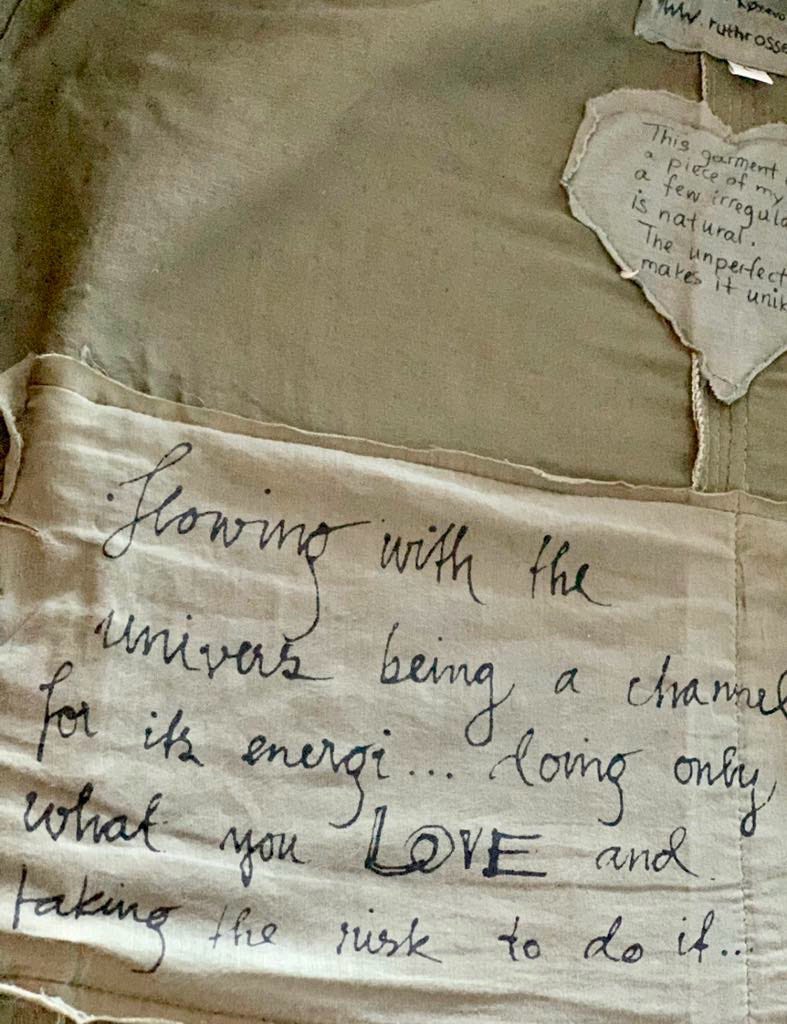 www.ruthrosse
This garment
a piece of my
a few irregula
is natural.
The unperfect
makes it unik
flowing with the
univers being a channel
for its energi... doing only
what you LOVE and
taking the risk to do it...